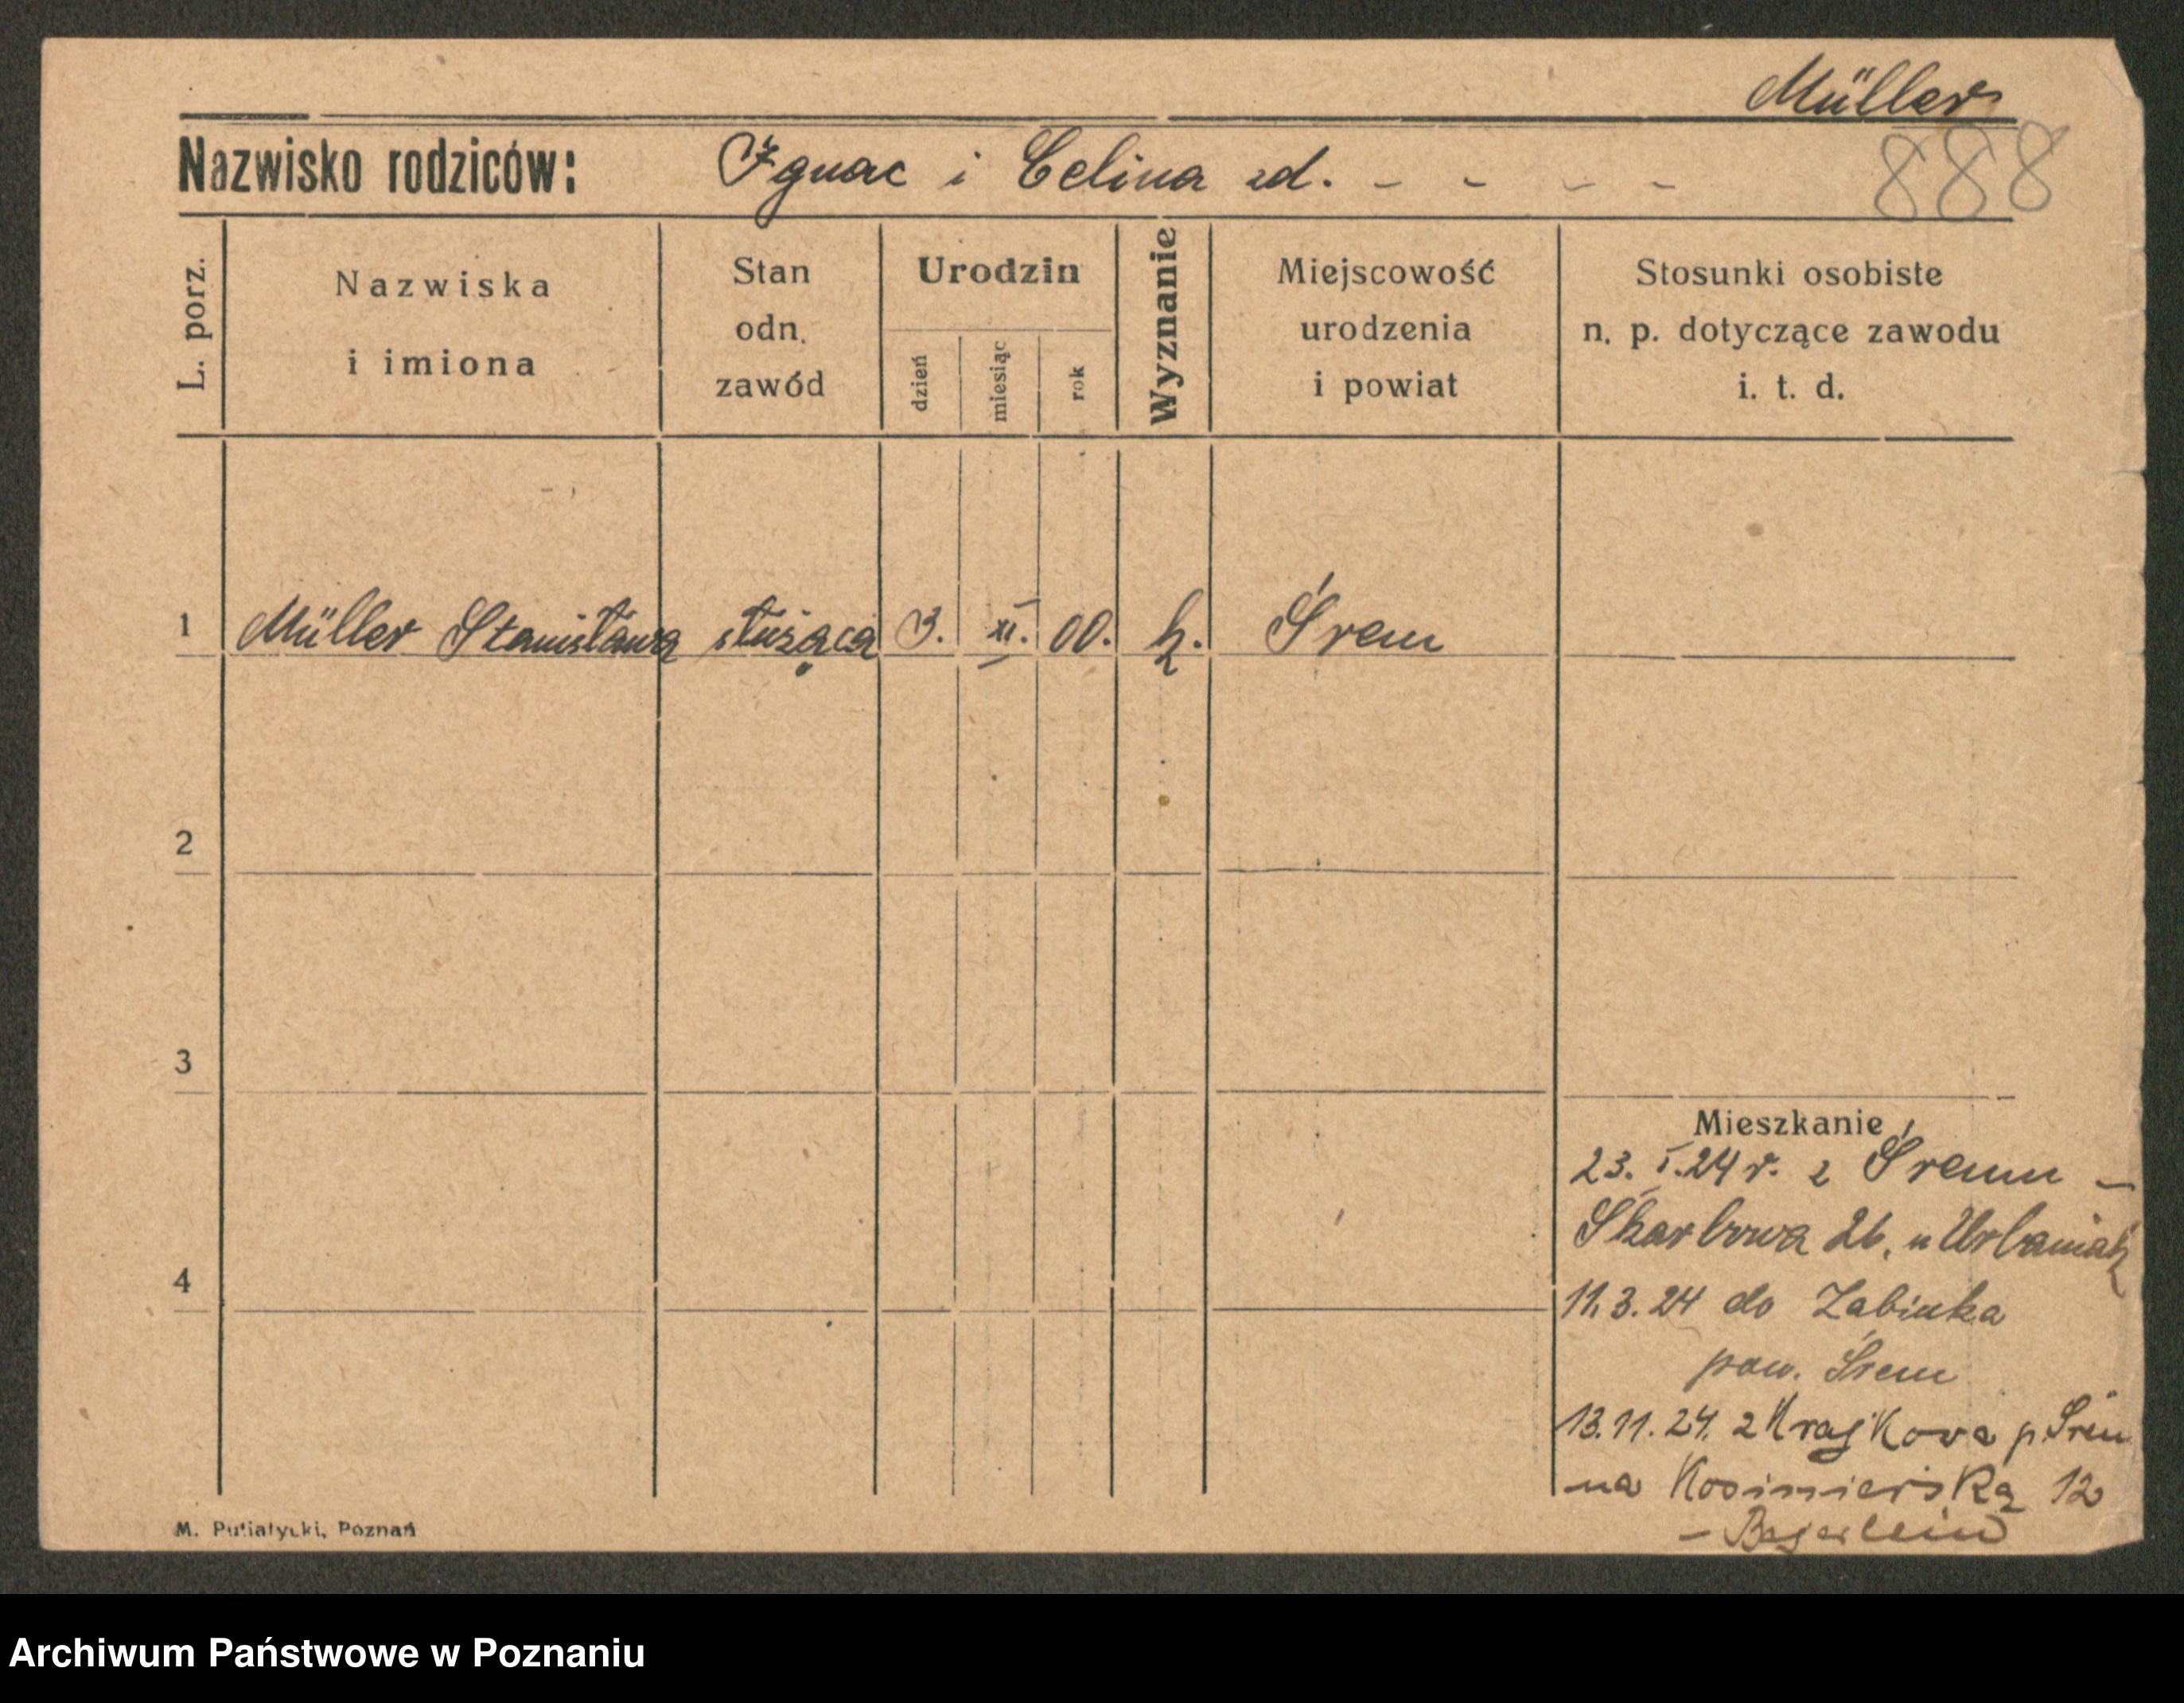 Müller
Nazwisko rodziców: Ignac i Celina zd. - - - -
888
L. porz.
Nazwiska
i imiona
Stan
odn.
zawód
Urodzin
dzień
miesiąc
rok
Wyznanie
Miejscowość
urodzenia
i powiat
Stosunki osobiste
n. p. dotyczące zawodu
i. t. d.
1 Müller Stanisława służąca 3. XI. 00. k. Śrem
2
3
4
Mieszkanie
23. I. 24 r. z Śremu -
Skarbowa 26, u Urbaniak
11.3.24 do Żabinka
pow. Śrem
13.11.24. z Krajkowa p. Śrem
na 12
M. Putiatycki, Poznań
Archiwum Państwowe w Poznaniu